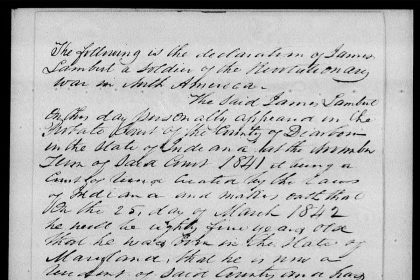 The following is the declaration of James
Lambert a soldier of the Revolutionary
War in North America.
The Said James Lambert
on this day personally appeared in the
Probate Court of the County of Dearborn
in the State of Indiana, at the November
Term of Said Court 1841 it being a
Court of being Created by the Laws
of Indiana and makes oath that
On the 25, day of March 1842
he will be eighty five years old
that he was born in the State of
Maryland, that he is now a
resident of Said County and has